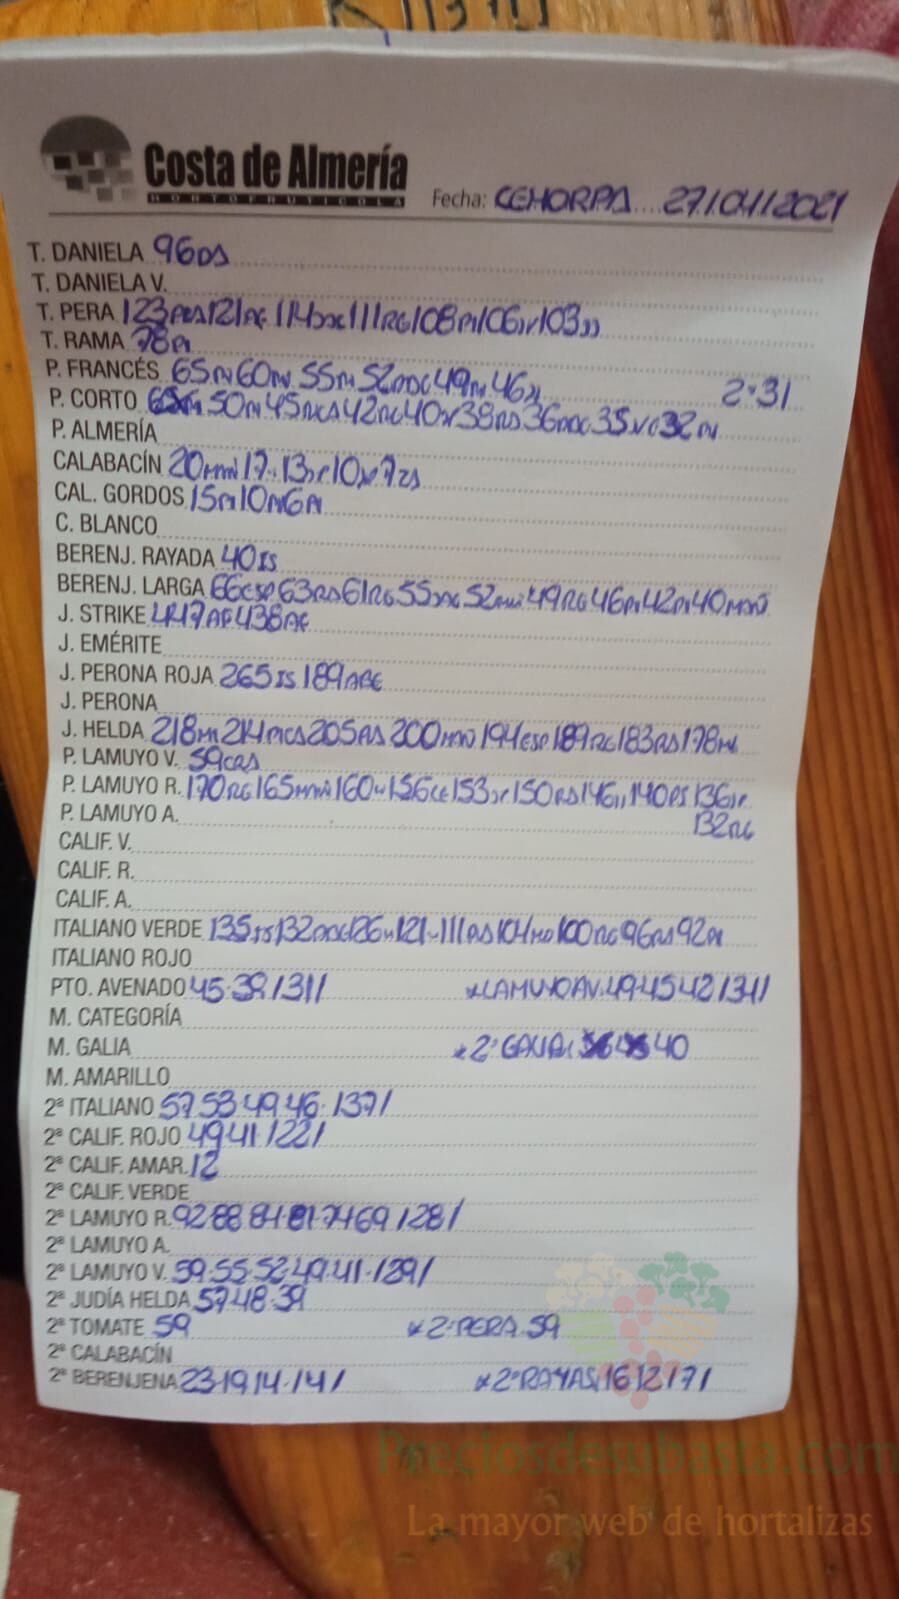 Costa de Almería
HORTOFRUTICOLA
Fecha: CEHORPA 27/04/2021
T. DANIELA 96DS
T. DANIELA V.
T. PERA 123 121AF 114 111RG 108PI 106 103JJ
T. RAMA 78PI
P. FRANCÉS 65 60 55 52 49 46 2·31
P. CORTO 50 45 42RG 40 38RS 36 35 32PI
P. ALMERÍA
CALABACÍN 20 17 13 10 7ZS
CAL. GORDOS 15PI 10 6PI
C. BLANCO
BERENJ. RAYADA 40IS
BERENJ. LARGA 66ESP 63RS 61RG 55 52 49RG 46PI 42PI 40
J. STRIKE 447AF 438AF
J. EMÉRITE
J. PERONA ROJA 265IS 189
J. PERONA
J. HELDA 218 214 205RS 200 194ESP 189RG 183RS 178
P. LAMUYO V. 59
P. LAMUYO R. 170RG 165 160 156CE 153 150RS 146 140PS 136
132RG
P. LAMUYO A.
CALIF. V.
CALIF. R.
CALIF. A.
ITALIANO VERDE 135JJ 132 126 121 111RS 104 100RG 96RS 92PI
ITALIANO ROJO
PTO. AVENADO 45·39/31/ *LAMUYO AV. 49·45 42/34/
M. CATEGORÍA
M. GALIA *2ª GALIA: 40
M. AMARILLO
2ª ITALIANO 57 53·49·46·/37/
2ª CALIF. ROJO 49·41·/22/
2ª CALIF. AMAR. 12
2ª CALIF. VERDE
2ª LAMUYO R. 92·88·84·81·74·69/28/
2ª LAMUYO A.
2ª LAMUYO V. 59·55·52·49·41·/29/
2ª JUDÍA HELDA 57·48·39
2ª TOMATE 59 *2ª PERA 59
2ª CALABACÍN
2ª BERENJENA 23·19·14·/4/ *2ª RAYAS 16·12/7/
Preciosdesubasta.com
La mayor web de hortalizas